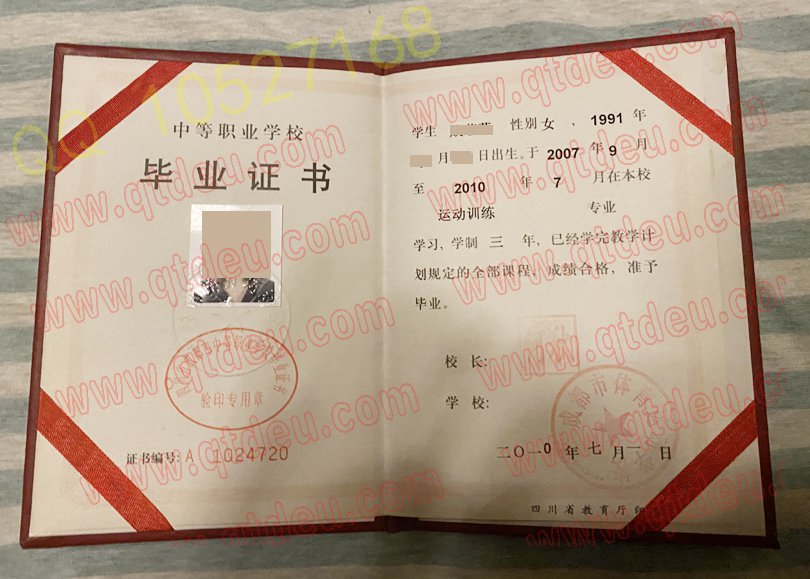 QQ 10527168
www.qtdeu.com
中等职业学校
毕业证书
验印专用章
证书编号: A 1024720
学生 性别 女 , 1991 年
月 日出生。于 2007 年 9 月
至 2010 年 7 月在本校
运动训练 专业
学习, 学制 三 年, 已经学完教学计
划规定的全部课程, 成绩合格, 准予
毕业。
校 长:
学 校:
成都市体育
二〇一0 年 七 月 一 日
四川省教育厅印